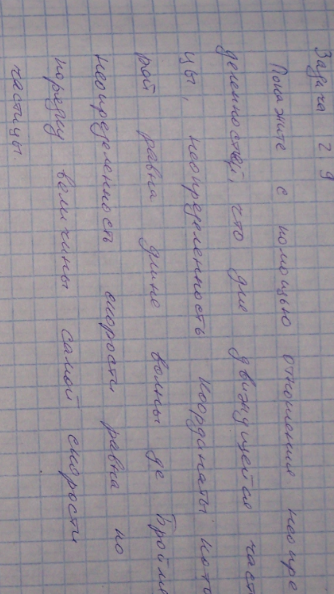 Задача 2.9
Покажите с помощью отношения неопре
деленностей, что для движущейся част
цы, неопределенность координаты кото
рой равна длине волны де Бройля
неопределенность скорости равна по
порядку величины самой скорости
частицы